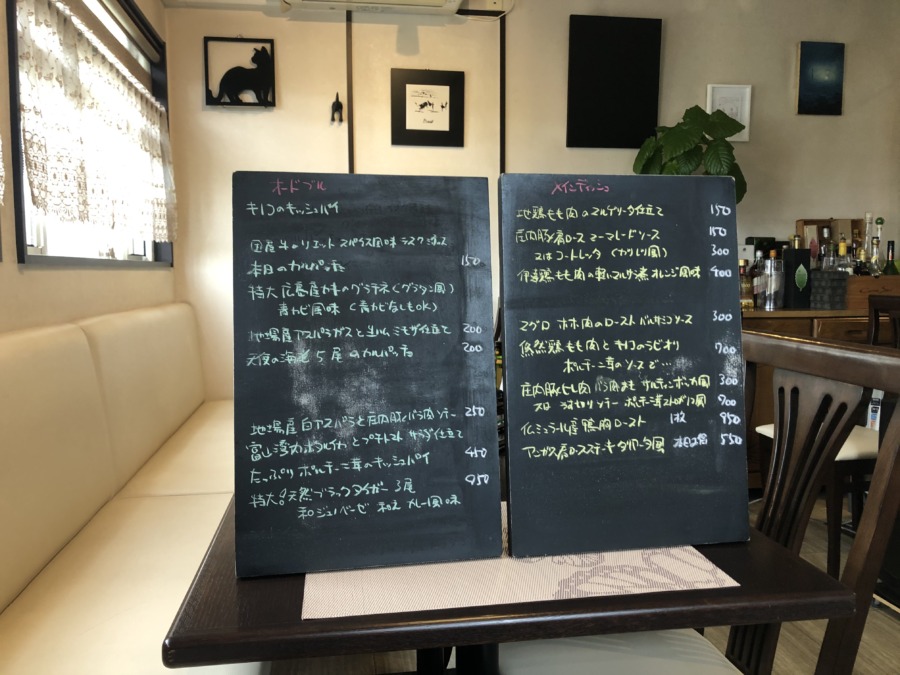 オードブル
キノコのキッシュパイ
国産牛のリエット スパイス風味 ラスク添え
本日のカルパッチョ 150
特大 広島産カキのグラチネ(グラタン風)
青カビ風味(青カビなしもOK)
地場産アスパラガスと生ハム ミモザ仕立て 200
天使の海老5尾のカルパッチョ 200
地場産白アスパラと庄内豚バラ肉ソテー 250
富山湾ホタルイカとプチトマト サラダ仕立て
たっぷりポルチーニ茸のキッシュパイ 450
特大天然ブラックタイガー3尾 950
和ジェノベーゼ 和え カレー風味
メインディッシュ
地鶏もも肉のマルゲリータ仕立て 150
庄内豚肩ロース マーマレードソース 150
又はコートレッタ(カツレツ風) 300
伊達鶏もも肉の軽いマルサラ煮 オレンジ風味 400
マグロ ホホ肉のロースト バルサミコソース 300
鶏もも肉とキノコのラビオリ 700
ポルチーニ茸のソースで…
庄内豚ヒレ肉 バラ肉 サルティンボッカ風 300
又は ソテー ポルチーニ 700
仏ミュラール産 鴨胸ロースト 1枚 950
アンガス肩ロースステーキ タリアータ風 550